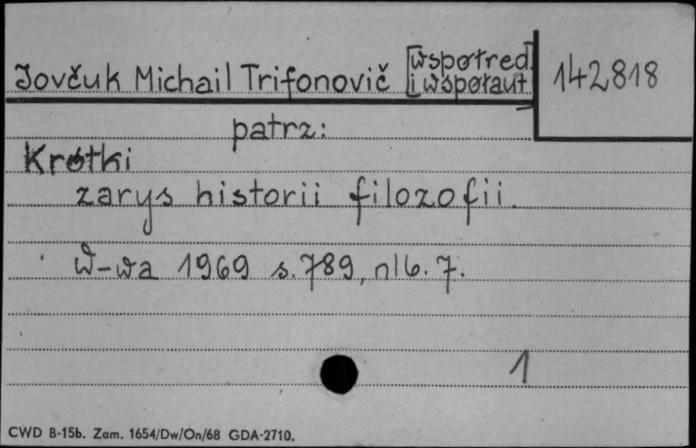 Jovčuk Michail Trifonovič [współred.
i współaut.
142818
patrz:
Krótki
zarys historii filozofii.
W-wa 1969 s. 789, nlb. 7.
1
CWD B-15b. Zam. 1654/Dw/On/68 GDA-2710.